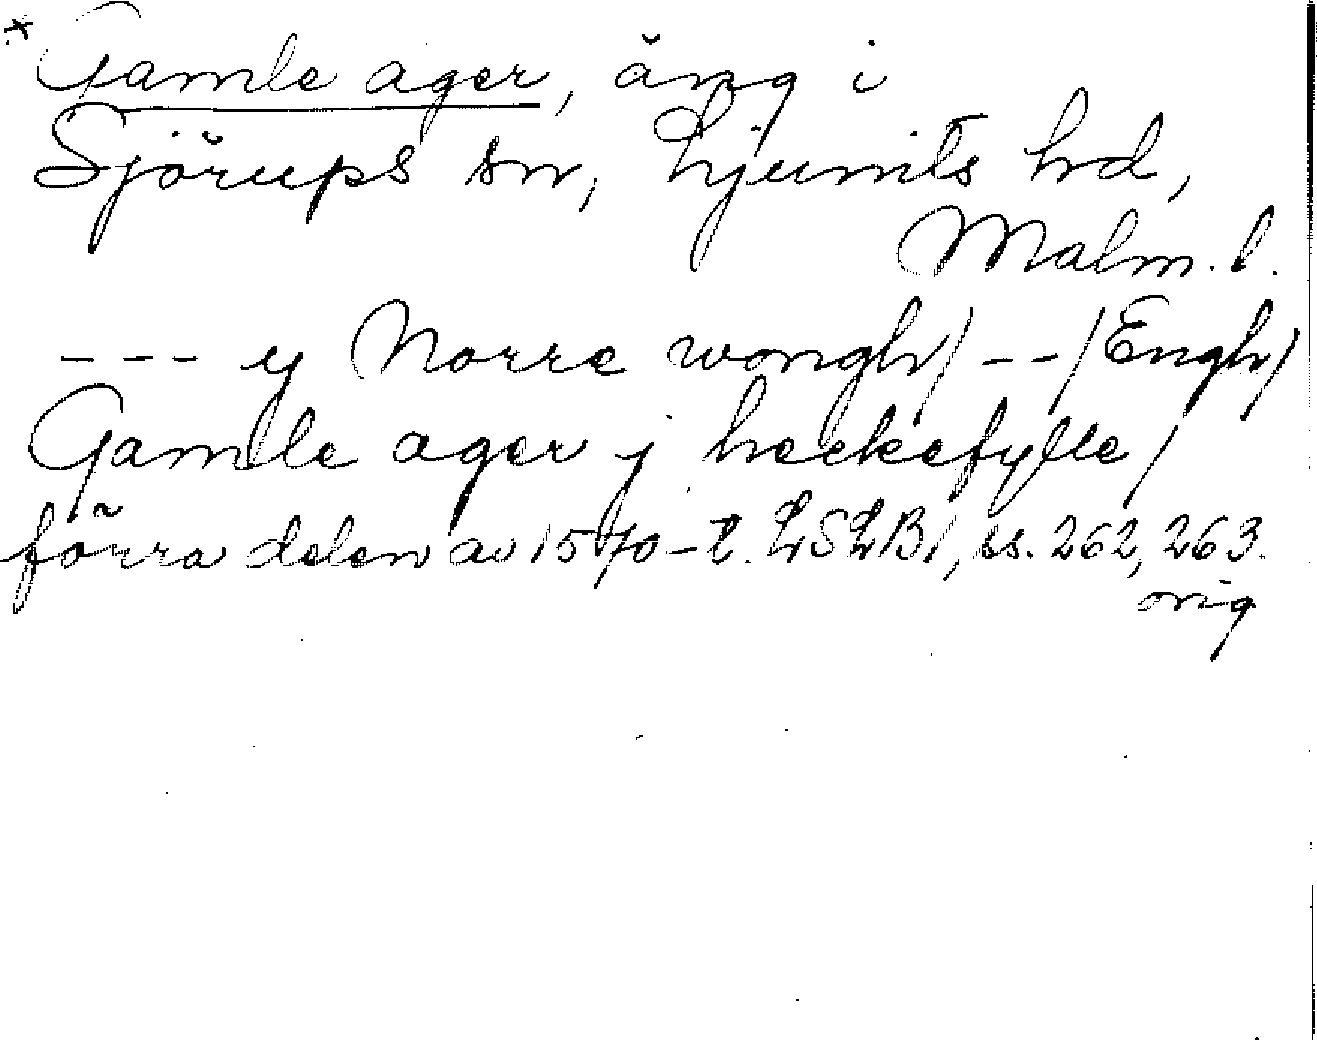 * Gamle ager, äng i
Sjörups sn, Ljunits hd,
Malm. l.
--- y Norre wongh/ --/Engh/
Gamle ager j heckefylle/
förra delen av 1570-t. LSLB1, ss. 262, 263.
orig